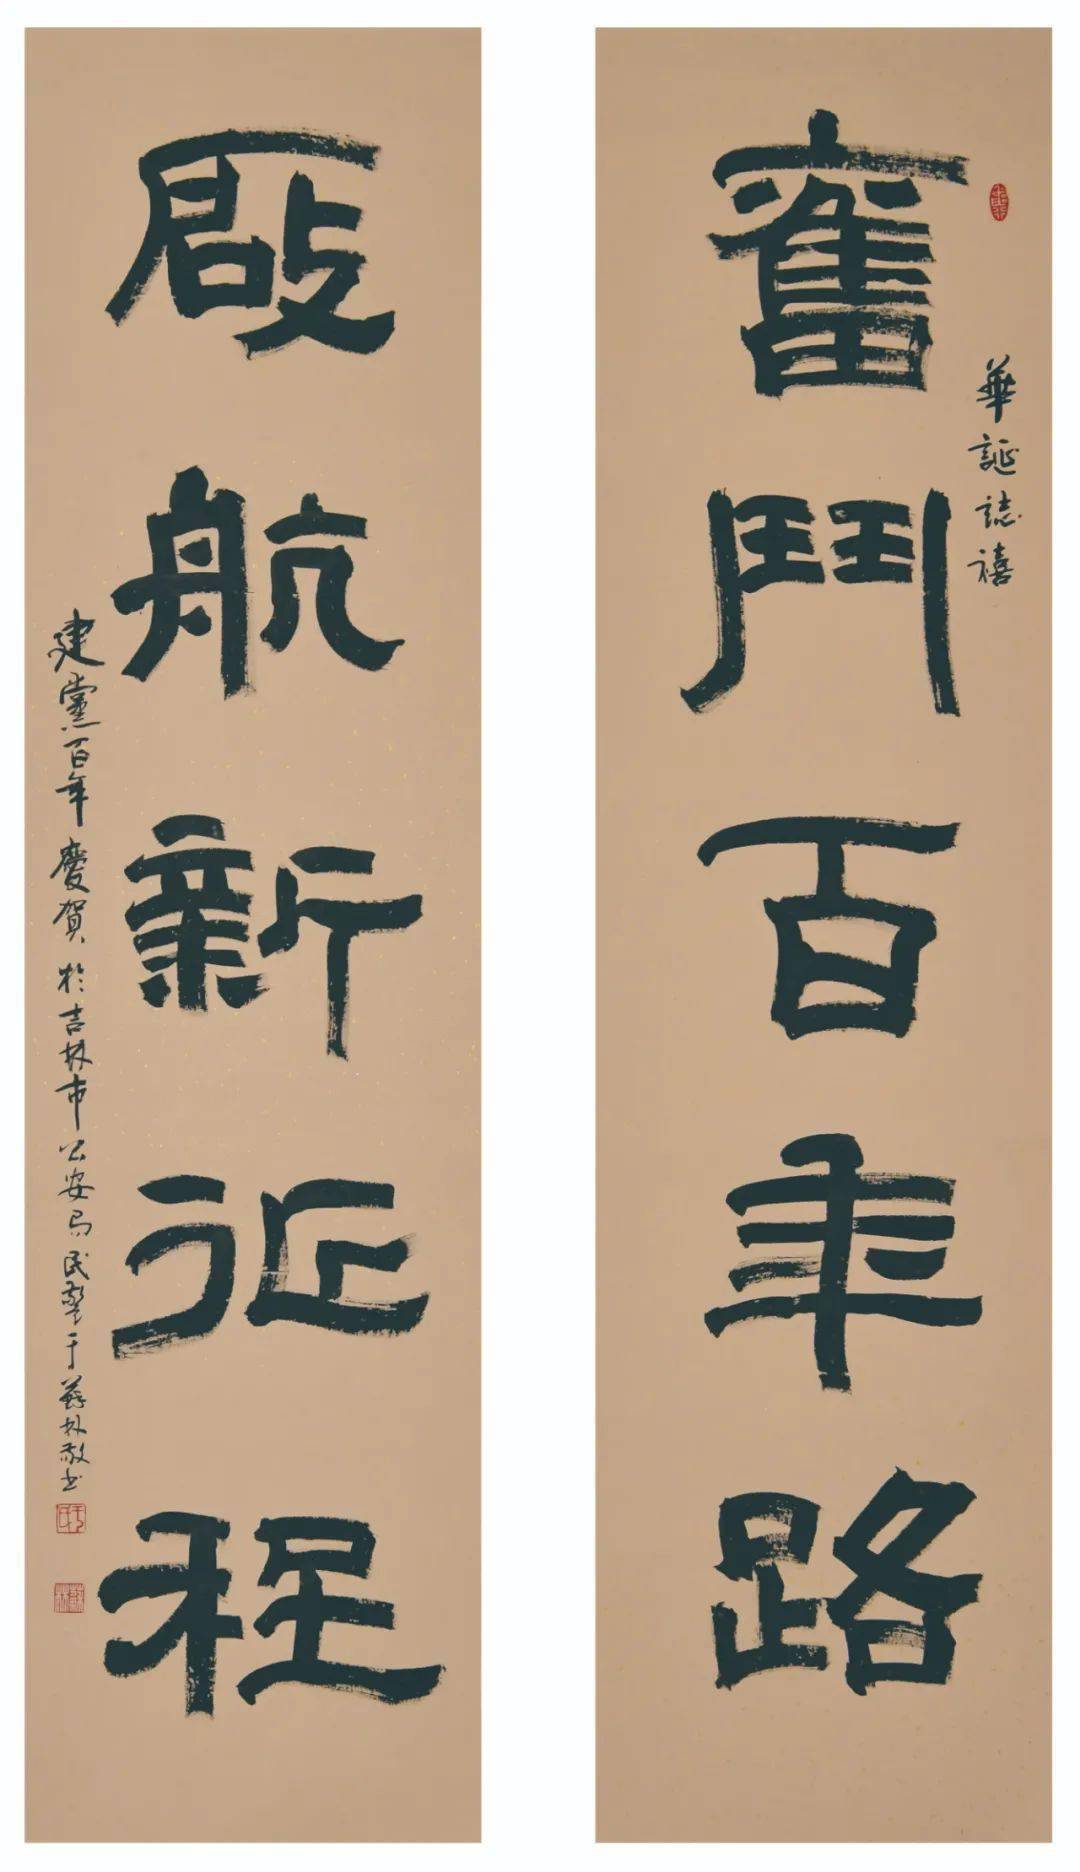 華誕誌禧
奮鬥百年路
啟航新征程
建黨百年慶賀於吉林市公安局民警于蘇林敬书